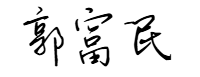 郭富民